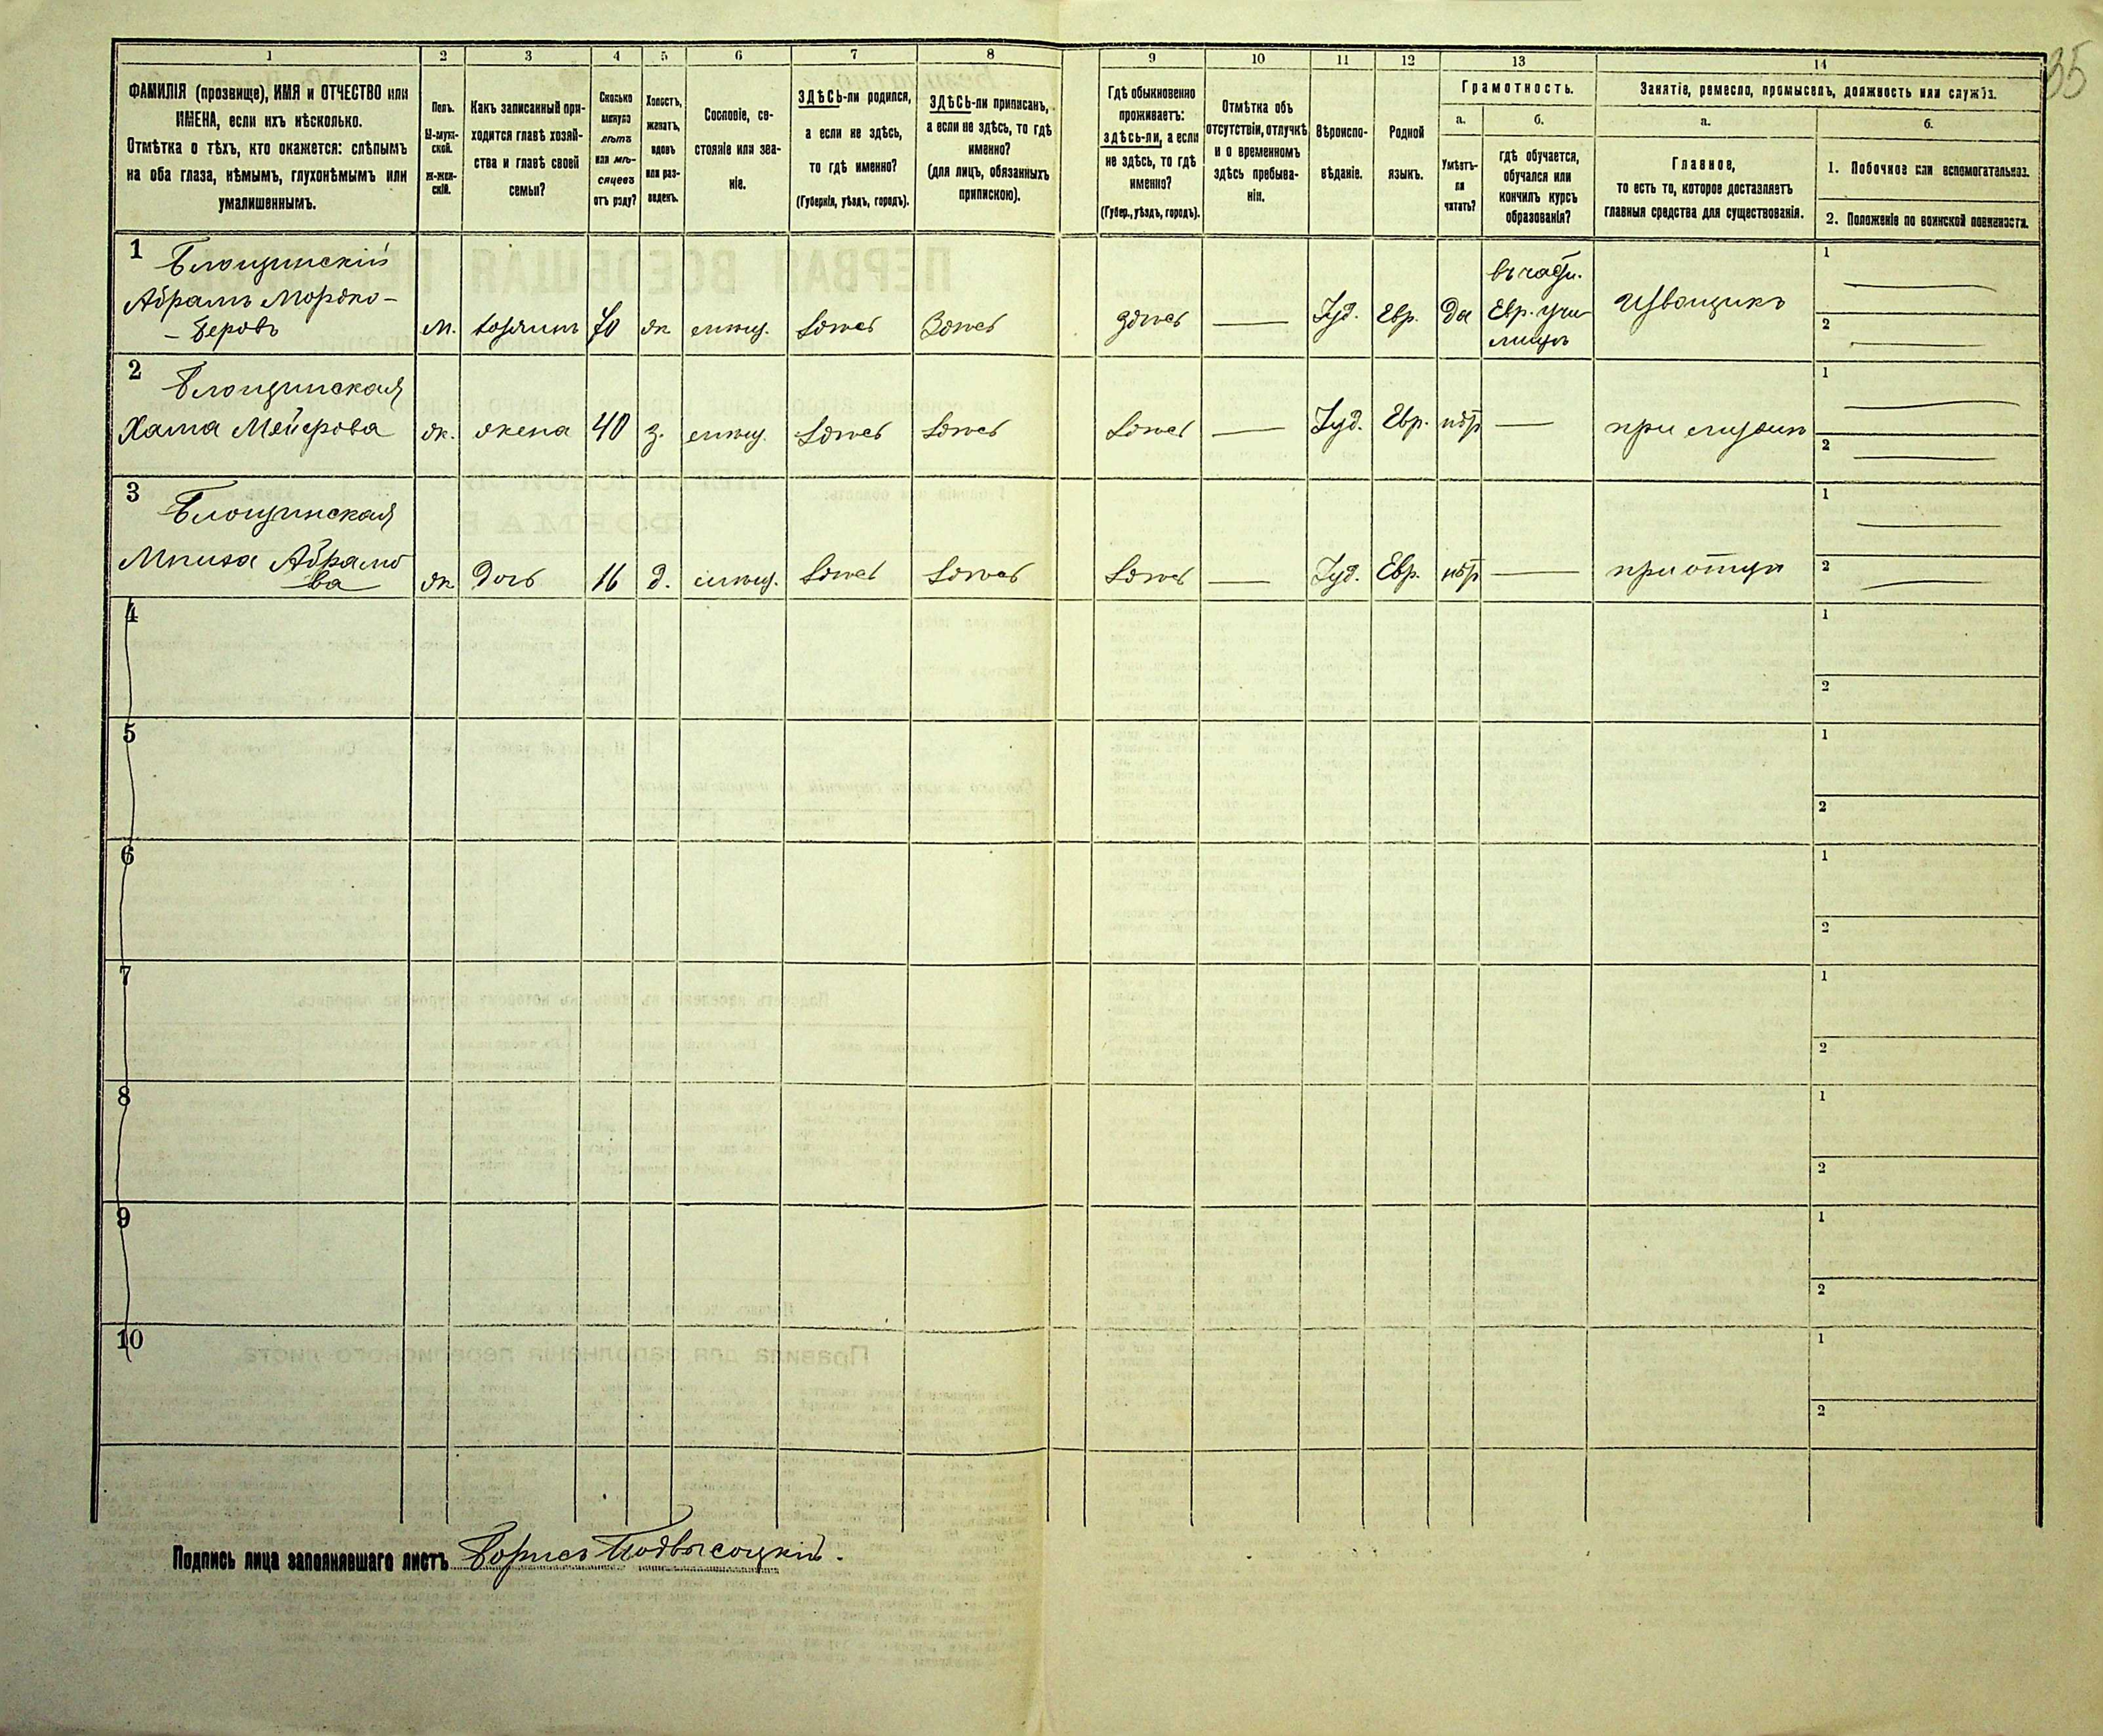 35
1 2 3 4 5 6 7 8 9 10 11 12 13 14
ФАМИЛІЯ (прозвище), ИМЯ и ОТЧЕСТВО или
ИМЕНА, если ихъ нѣсколько.
Отмѣтка о тѣхъ, кто окажется: слѣпымъ
на оба глаза, нѣмымъ, глухонѣмымъ или
умалишеннымъ.
Полъ.
М-муж-
ской.
Ж-жен-
скій.
Какъ записанный при-
ходится главѣ хозяй-
ства и главѣ своей
семьи?
Сколько
минуло
лѣтъ
или мѣ-
сяцевъ
отъ роду?
Холостъ,
женатъ,
вдовъ
или раз-
веденъ.
Сословіе, со-
стояніе или зва-
ніе.
ЗДѢСЬ-ли родился,
а если не здѣсь,
то гдѣ именно?
(Губернія, уѣздъ, городъ).
ЗДѢСЬ-ли приписанъ,
а если не здѣсь, то гдѣ
именно?
(для лицъ, обязанныхъ
припискою).
Гдѣ обыкновенно
проживаетъ:
здѣсь-ли, а если
не здѣсь, то гдѣ
именно?
(Губер., уѣздъ, городъ).
Отмѣтка объ
отсутствіи, отлучкѣ
и о временномъ
здѣсь пребыва-
ніи.
Вѣроиспо-
вѣданіе.
Родной
языкъ.
Грамотность.
а.
Умѣетъ-
ли
читать?
б.
гдѣ обучается,
обучался или
кончилъ курсъ
образованія?
Занятіе, ремесло, промыселъ, должность или служба.
а.
Главное,
то есть то, которое доставляетъ
главныя средства для существованія.
б.
1. Побочное или вспомогательное.
2. Положеніе по воинской повинности.
1 Блощинскій
Абрамъ Мордко-
-Беровъ
м. хозяинъ 40 ж мѣщ. Здѣсь Здѣсь здѣсь — Іуд. Евр. да
въ част.
Евр. учи
лищѣ
Извощикъ
1
2
2 Блощинская
Хана Мейерова
ж. жена 40 з. мѣщ. Здѣсь Здѣсь Здѣсь — Іуд. Евр. нѣт — при мужѣ
1
2
3 Блощинская
Абрамо
ва
ж дочь 16 д. мѣщ. Здѣсь Здѣсь Здѣсь — Іуд. Евр. нѣт — при отцѣ
1
2
4
1
2
5
1
2
6
1
2
7
1
2
8
1
2
9
1
2
10
1
2
Подпись лица заполнявшаго листъ Борисъ Подвысоцкій.